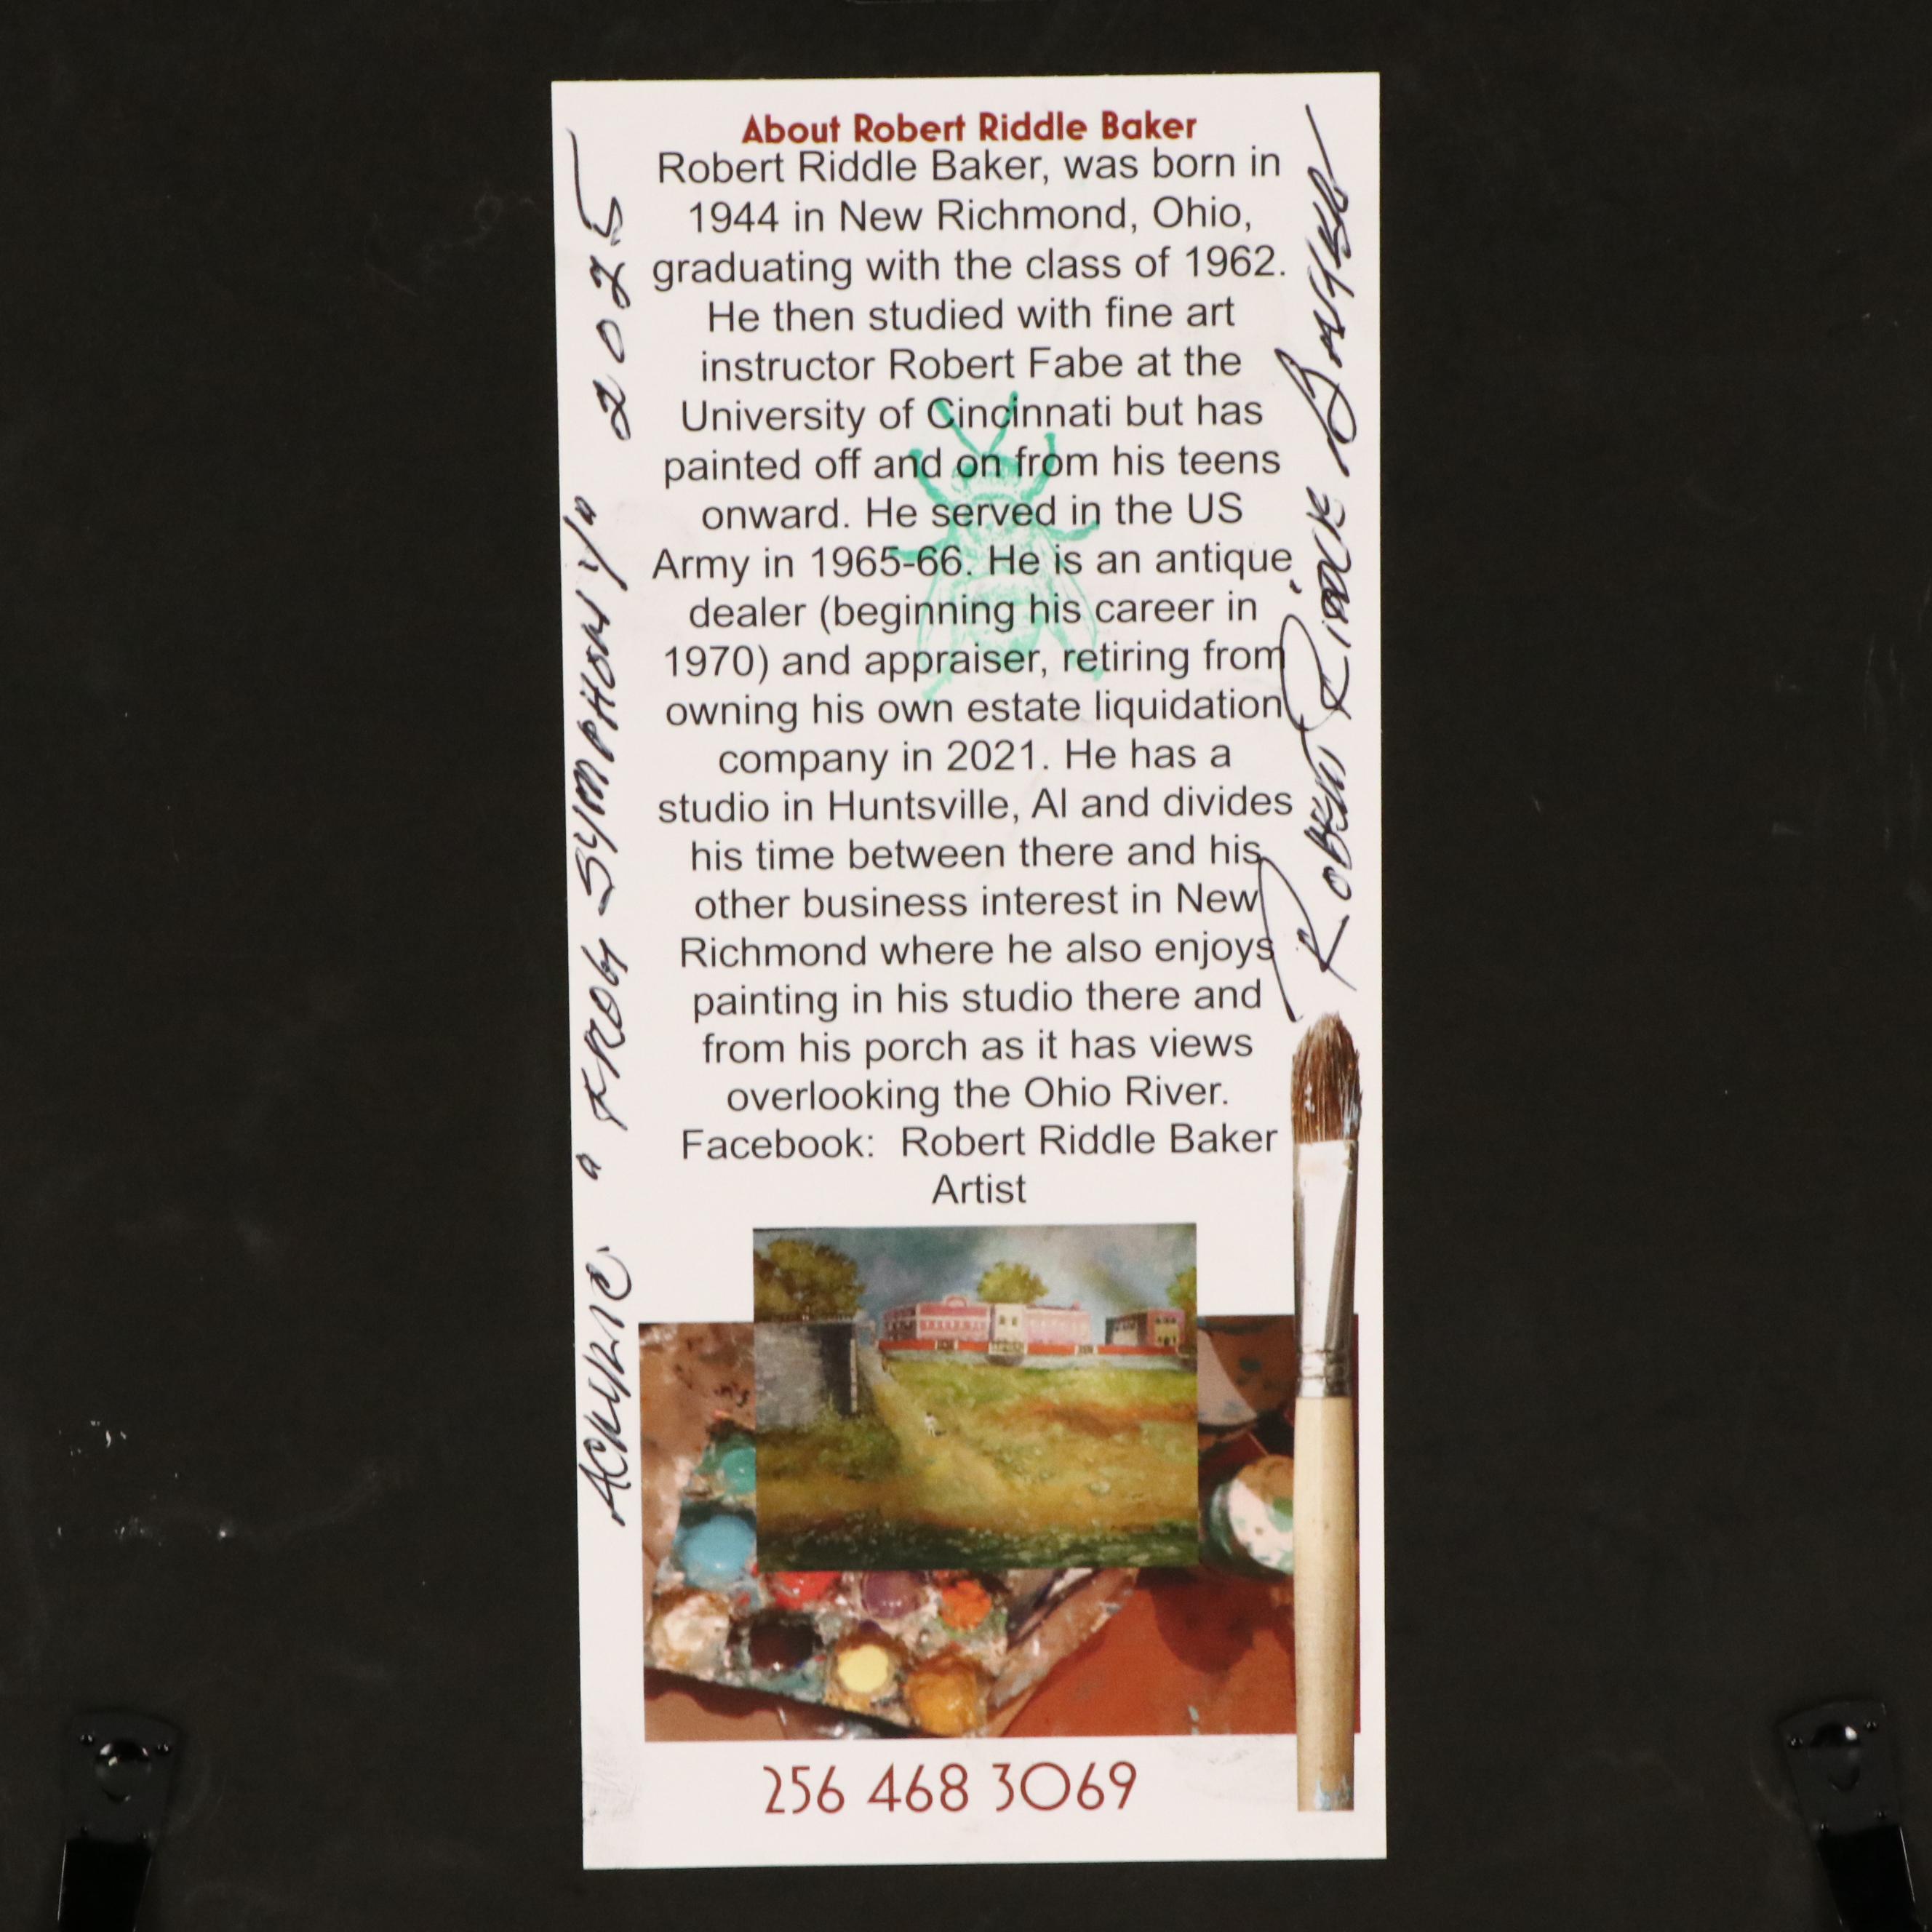 About Robert Riddle Baker
Robert Riddle Baker, was born in
1944 in New Richmond, Ohio,
graduating with the class of 1962.
He then studied with fine art
instructor Robert Fabe at the
University of Cincinnati but has
painted off and on from his teens
onward. He served in the US
Army in 1965-66. He is an antique
dealer (beginning his career in
1970) and appraiser, retiring from
owning his own estate liquidation
company in 2021. He has a
studio in Huntsville, Al and divides
his time between there and his
other business interest in New
Richmond where he also enjoys
painting in his studio there and
from his porch as it has views
overlooking the Ohio River.
Facebook: Robert Riddle Baker
Artist
256 468 3069
ACRYLIC. " FROG SYMPHONY" 2025
Robert Riddle Baker